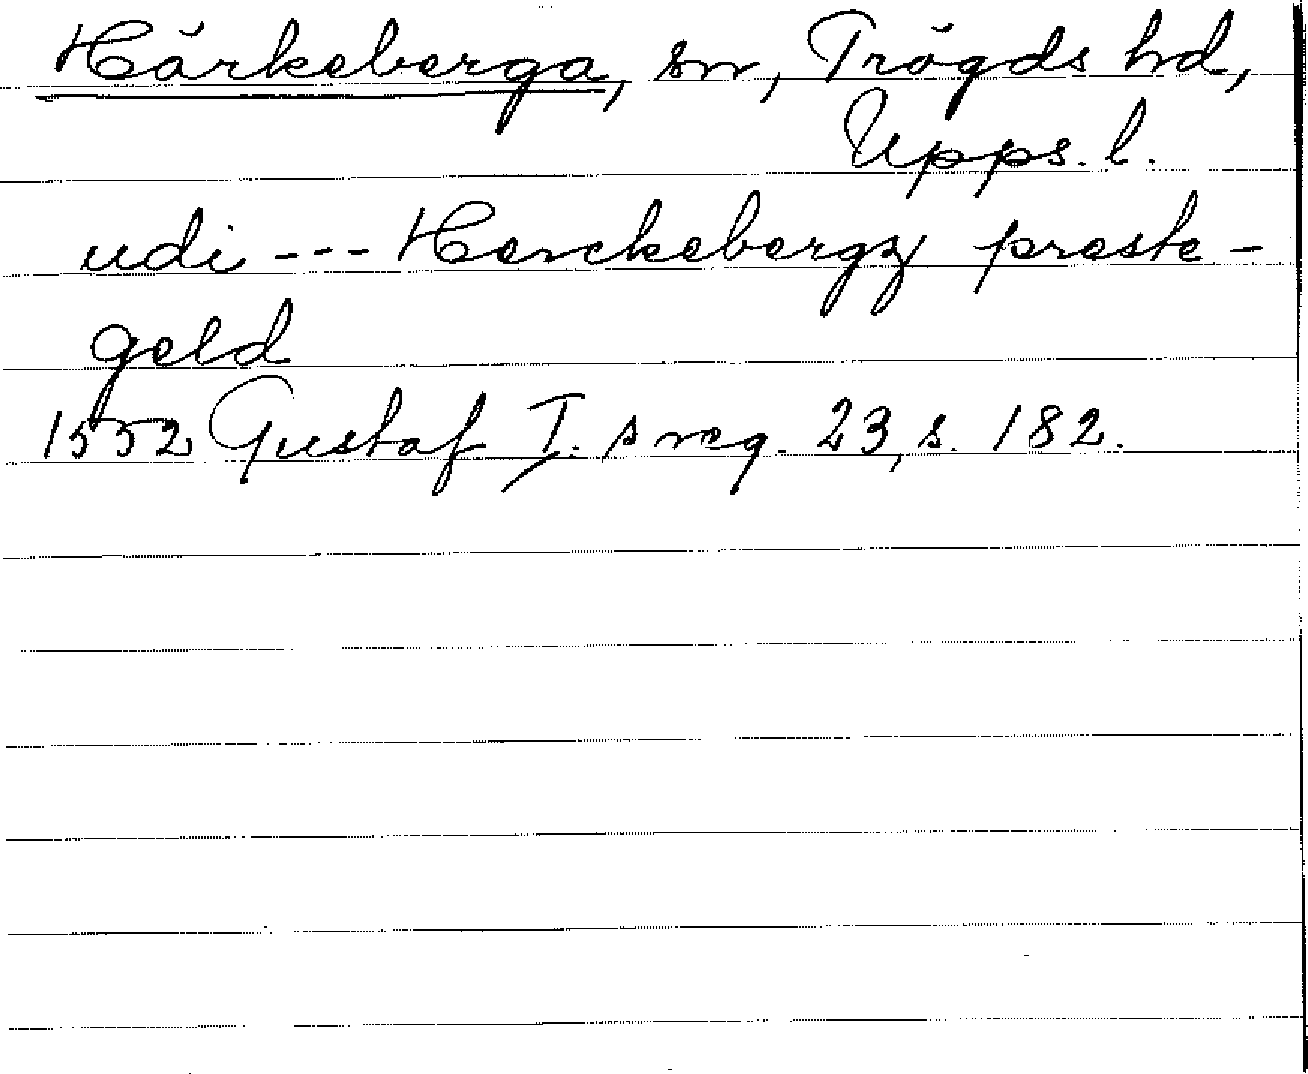 Härkeberga, sn, Trögds hd,
Upps. l.
udi --- Herckebergz preste-
geld
1552 Gustaf I. s reg. 23, s. 182.